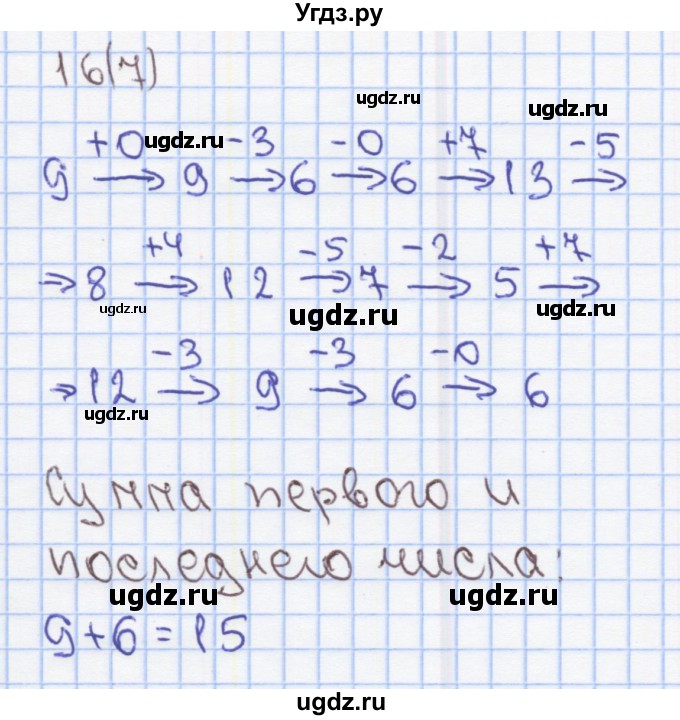 Угдз.ру
16(7)
ugdz.ru
ugdz.ru
ugdz.ru
+0 -3 -0 +7 -5
9 → 9 → 6 → 6 → 13 →
+4 -5 -2 +7
→ 8 → 12 → 7 → 5 →
ugdz.ru
ugdz.ru
ugdz.ru
-3 -3 -0
→ 12 → 9 → 6 → 6
ugdz.ru
Сумма первого и
последнего числа:
ugdz.ru
ugdz.ru
9+6=15
ugdz.ru